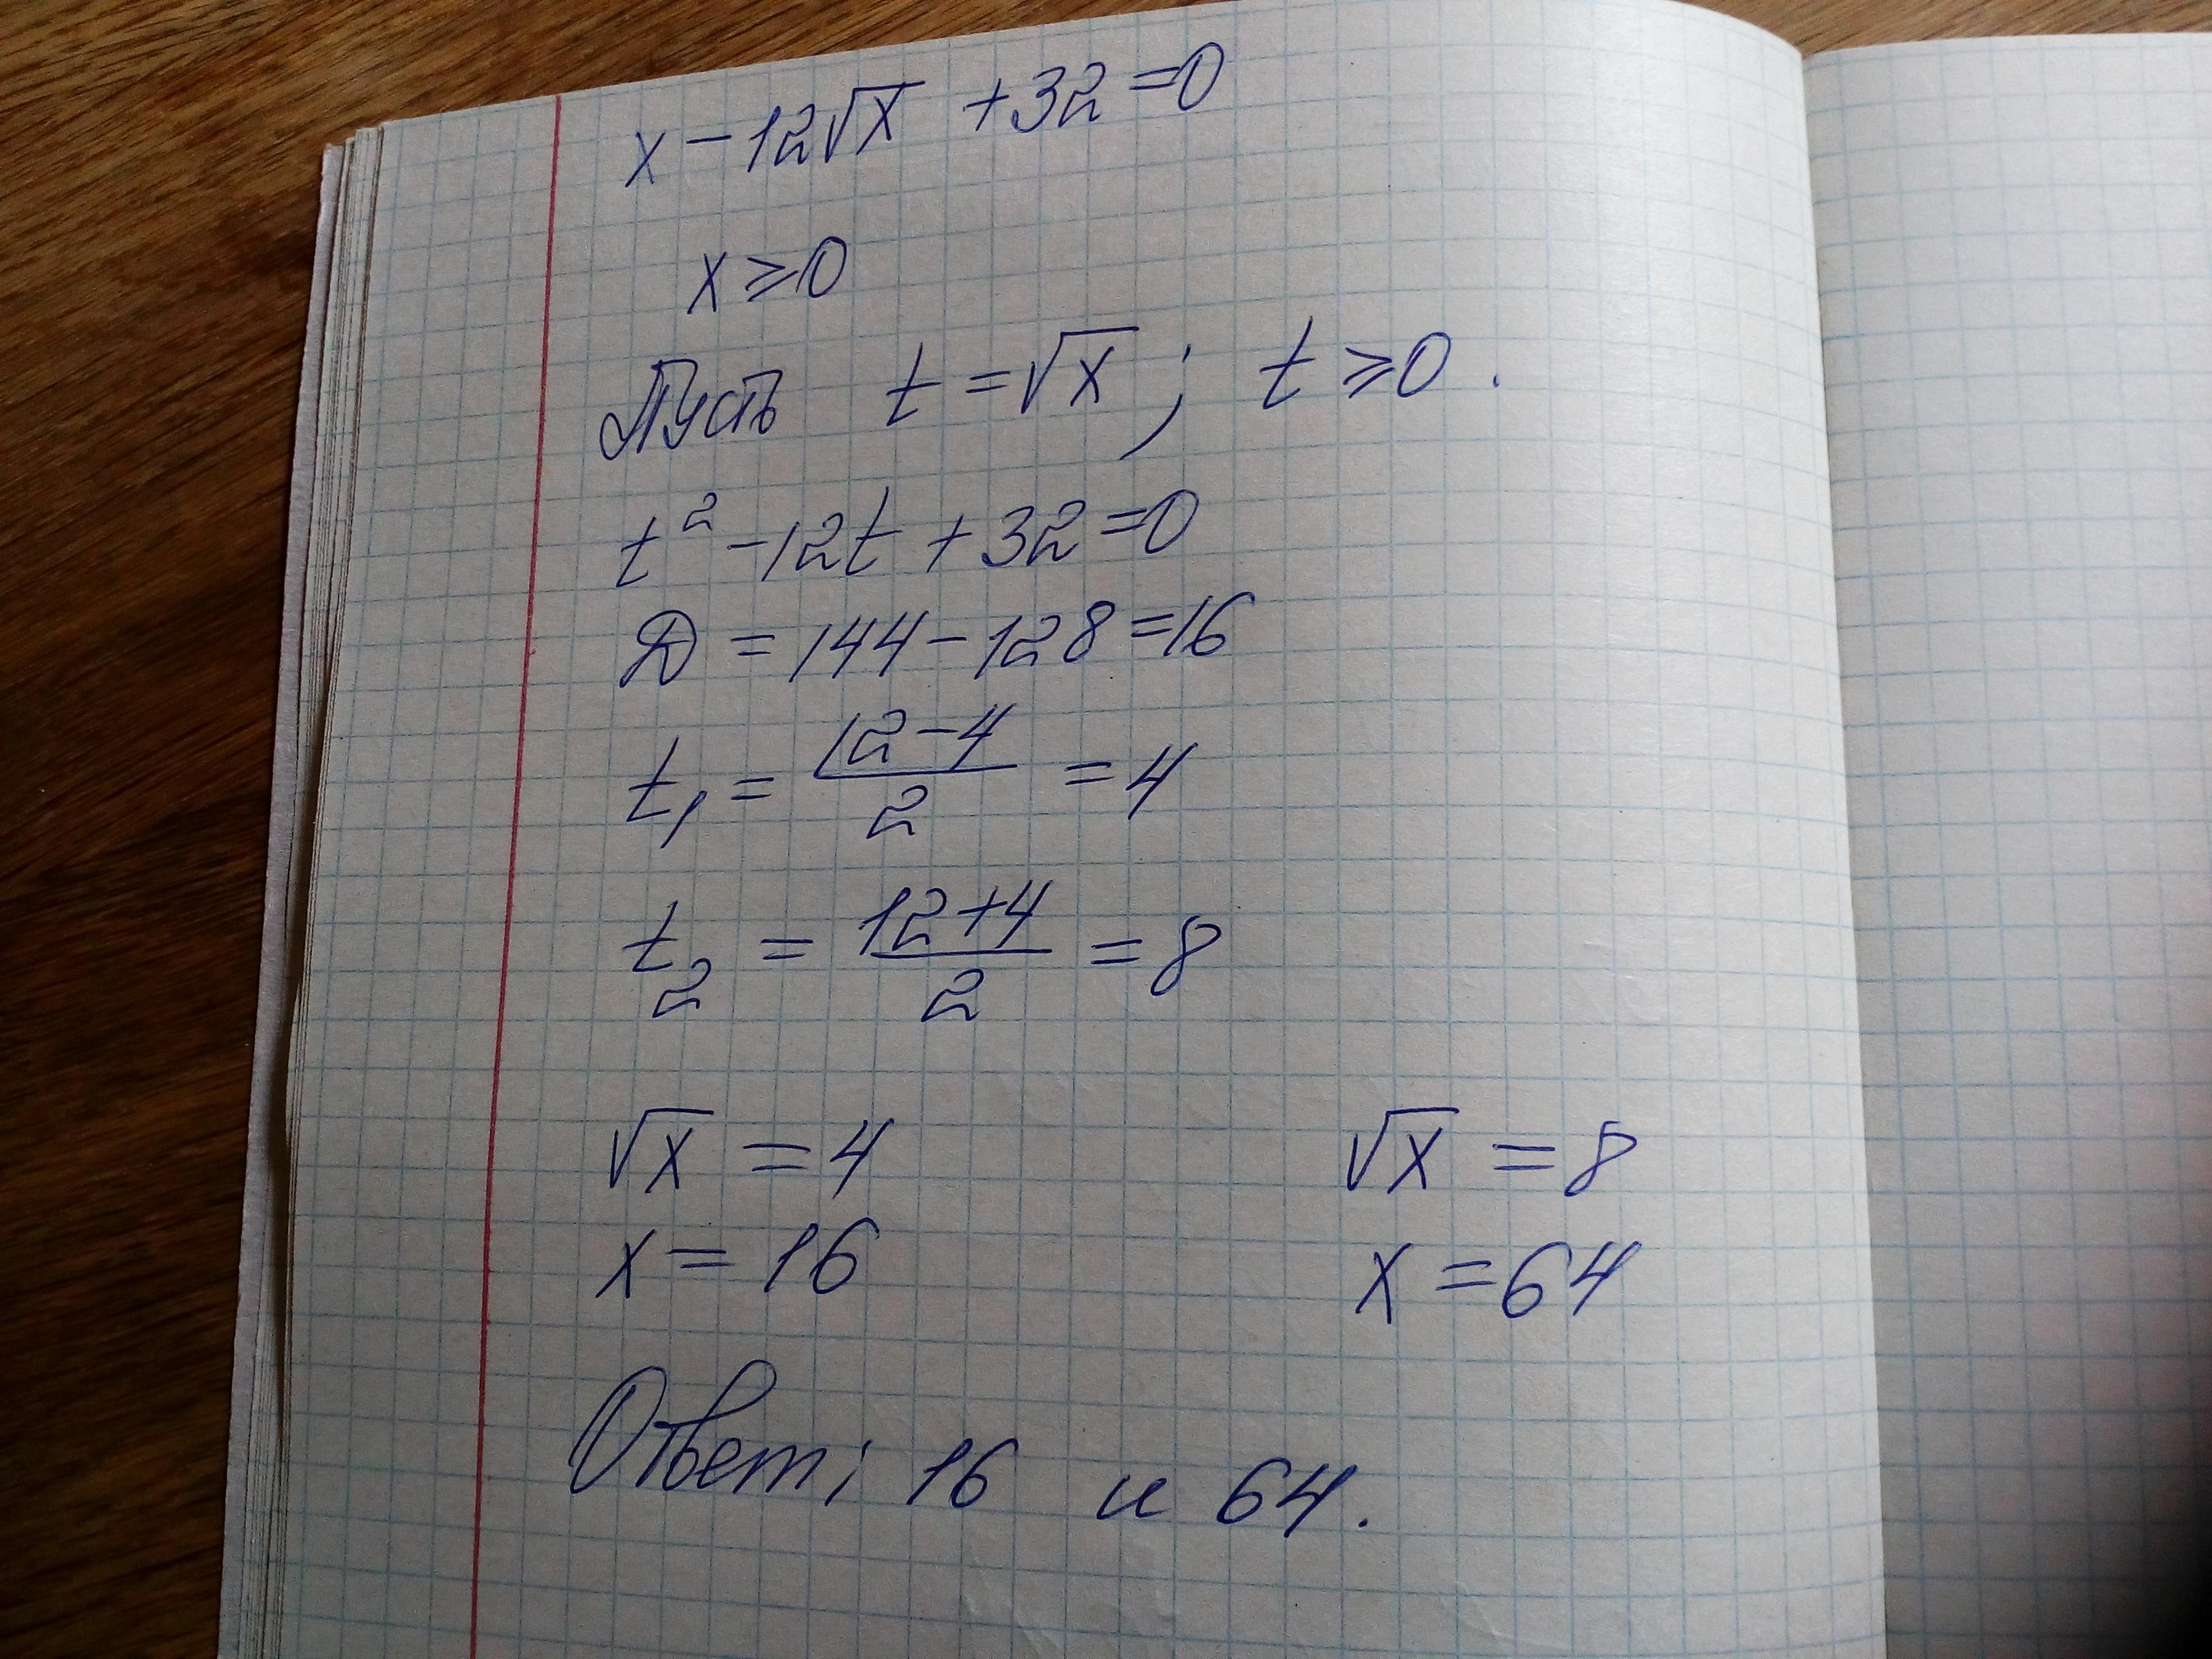 x − 12√x + 32 = 0
x ⩾ 0
Пусть t = √x ; t ⩾ 0 .
t² − 12t + 32 = 0
D = 144 − 128 = 16
t₁ = (12 − 4)/2 = 4
t₂ = (12 + 4)/2 = 8
√x = 4 √x = 8
x = 16 x = 64
Ответ: 16 и 64.